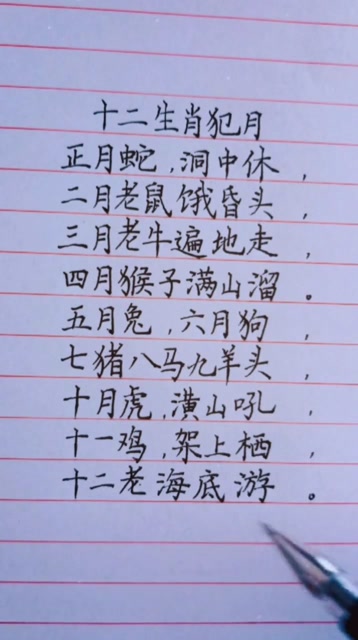 十二生肖犯月
正月蛇，洞中休，
二月老鼠饿昏头，
三月老牛遍地走，
四月猴子满山溜。
五月兔，六月狗，
七猪八马九羊头，
十月虎，潢山吼，
十一鸡，架上栖，
十二老海底游。